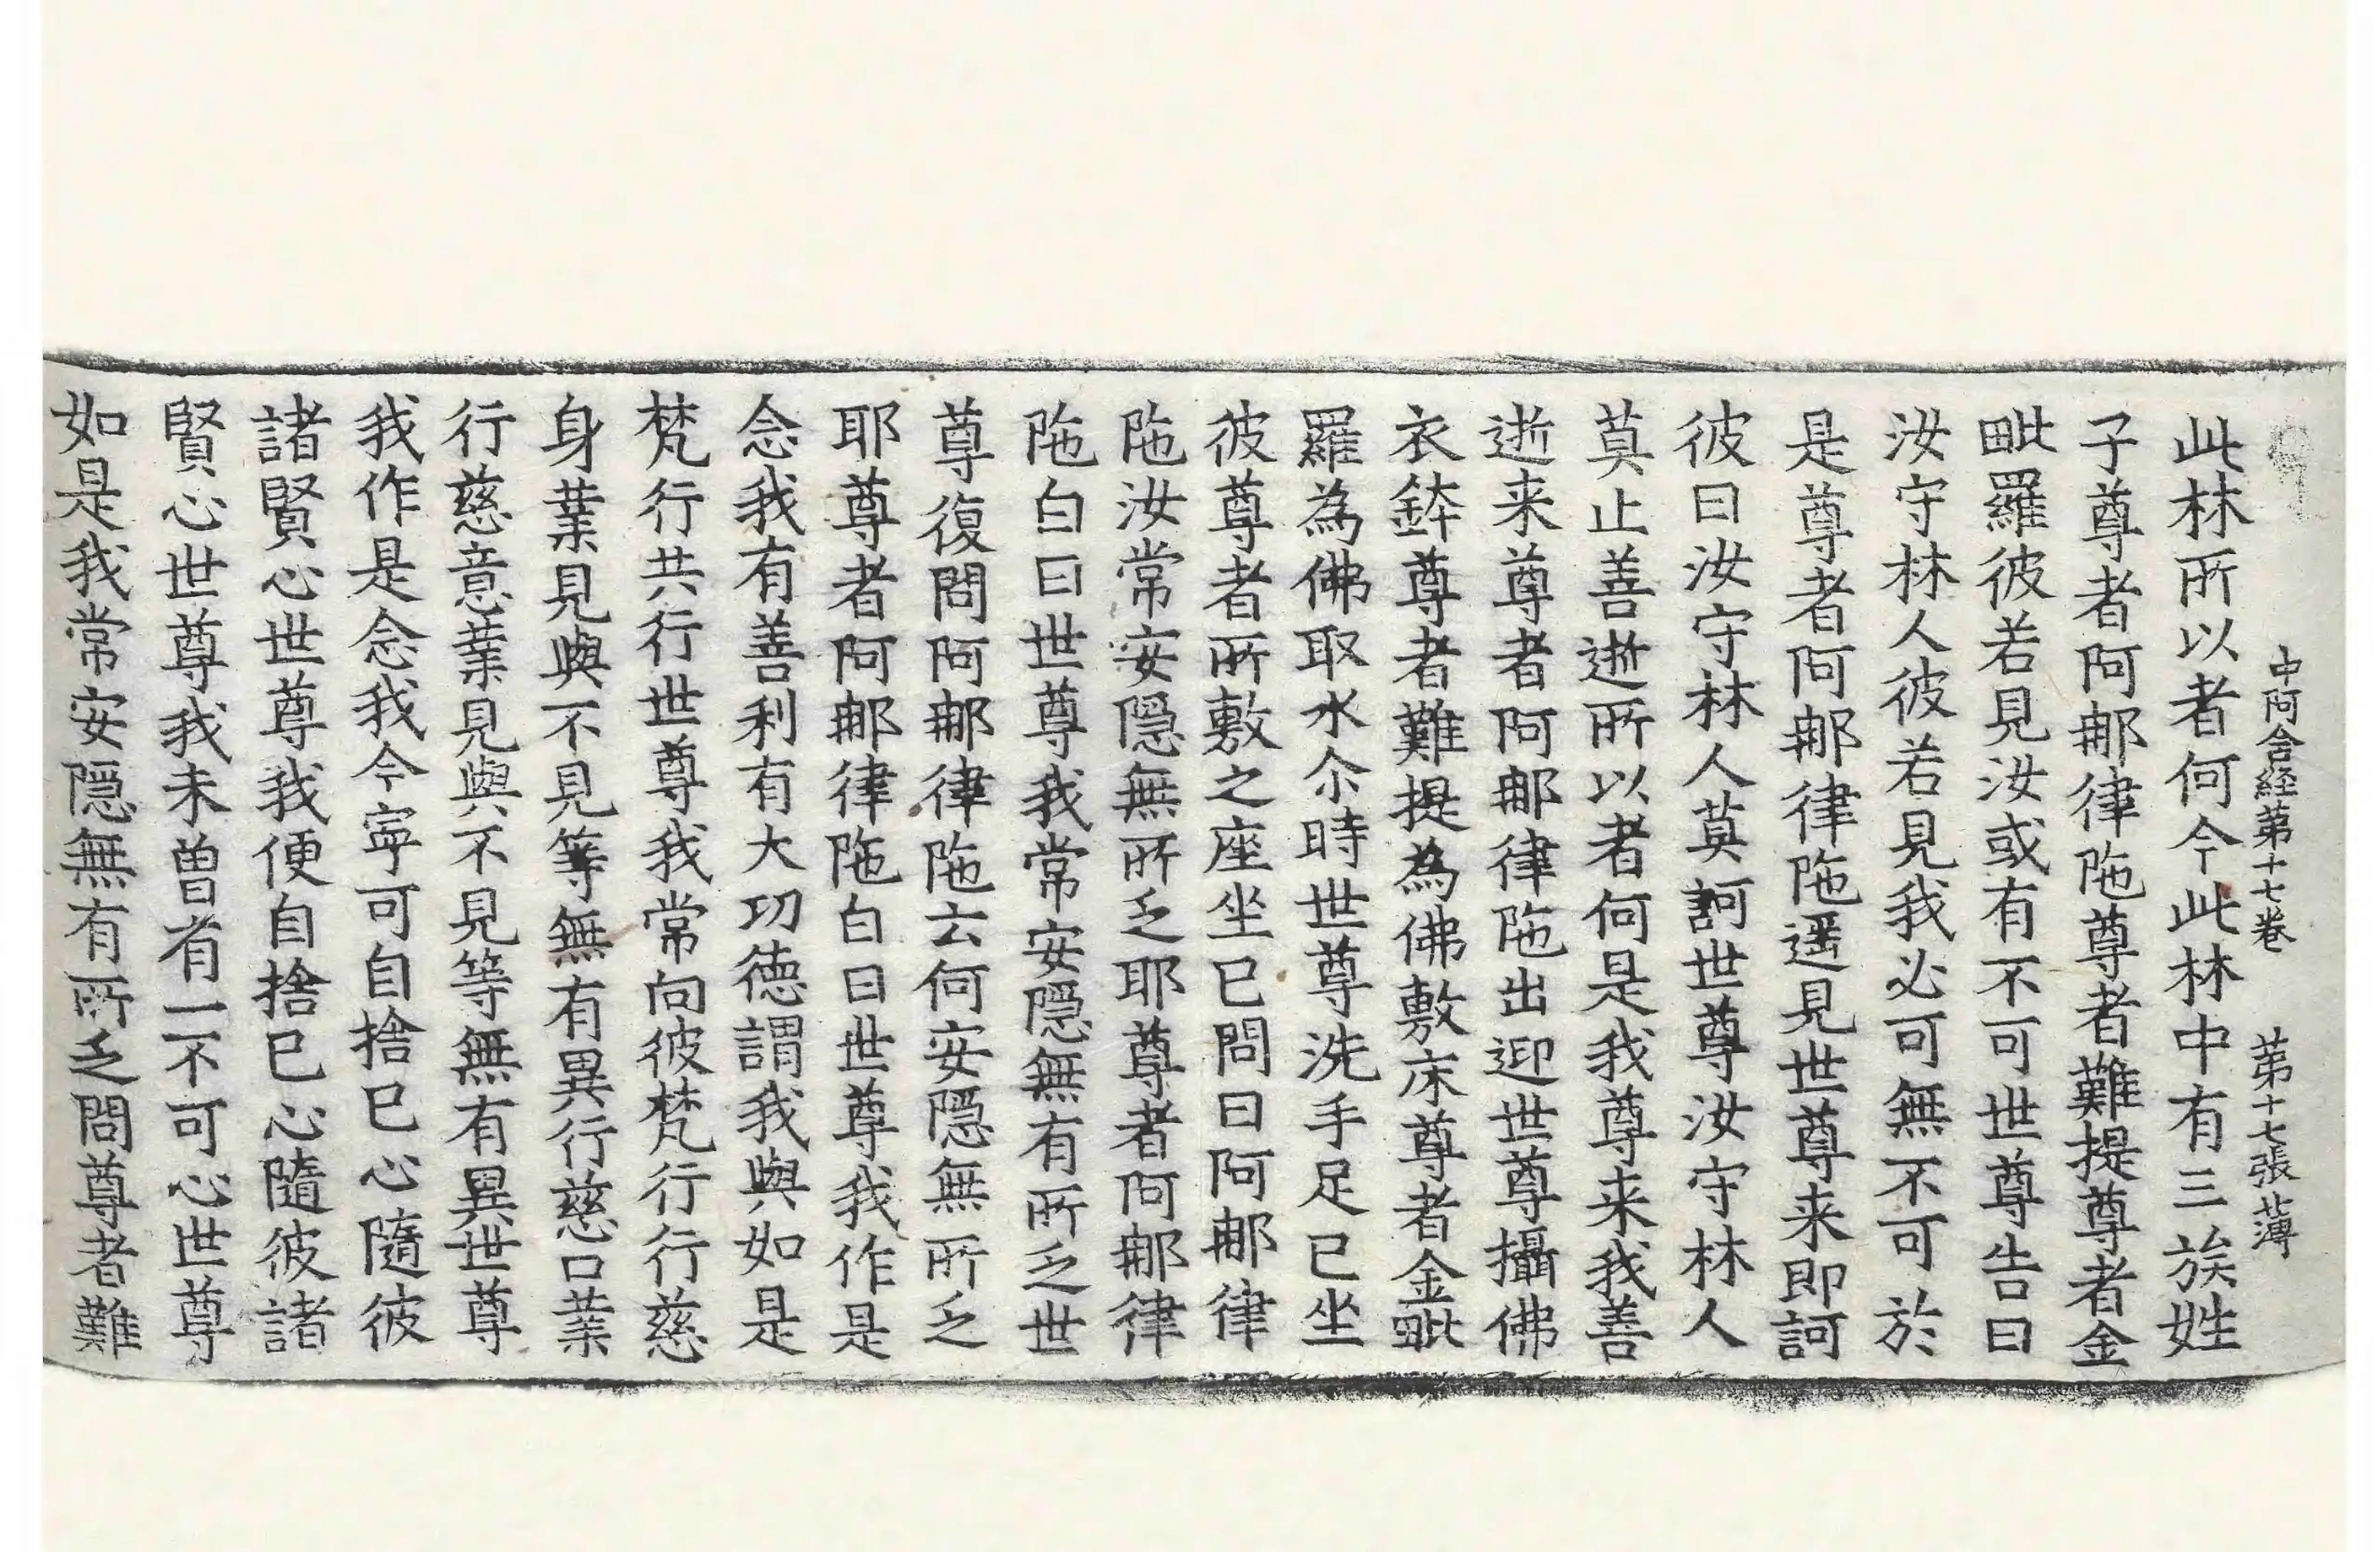 中阿含経第十七卷 第十七張 薄
此林所以者何今此林中有三族姓
子尊者阿那律陁尊者難提尊者金
毗羅彼若見汝或有不可世尊告曰
汝守林人彼若見我必可無不可於
是尊者阿那律陁遥見世尊来即訶
彼曰汝守林人莫訶世尊汝守林人
莫止善逝所以者何是我尊来我善
逝来尊者阿那律陁出迎世尊攝佛
衣鉢尊者難提為佛敷床尊者金毗
羅為佛取水尒時世尊洗手足已坐
彼尊者所敷之座坐已問曰阿那律
陁汝常安隱無所乏耶尊者阿那律
陁白曰世尊我常安隱無有所乏世
尊復問阿那律陁云何安隱無所乏
耶尊者阿那律陁白曰世尊我作是
念我有善利有大功德謂我與如是
梵行共行世尊我常向彼梵行行慈
身業見與不見等無有異行慈口業
行慈意業見與不見等無有異世尊
我作是念我今寧可自捨已心隨彼
諸賢心世尊我便自捨已心隨彼諸
賢心世尊我未曾有一不可心世尊
如是我常安隱無有所乏問尊者難